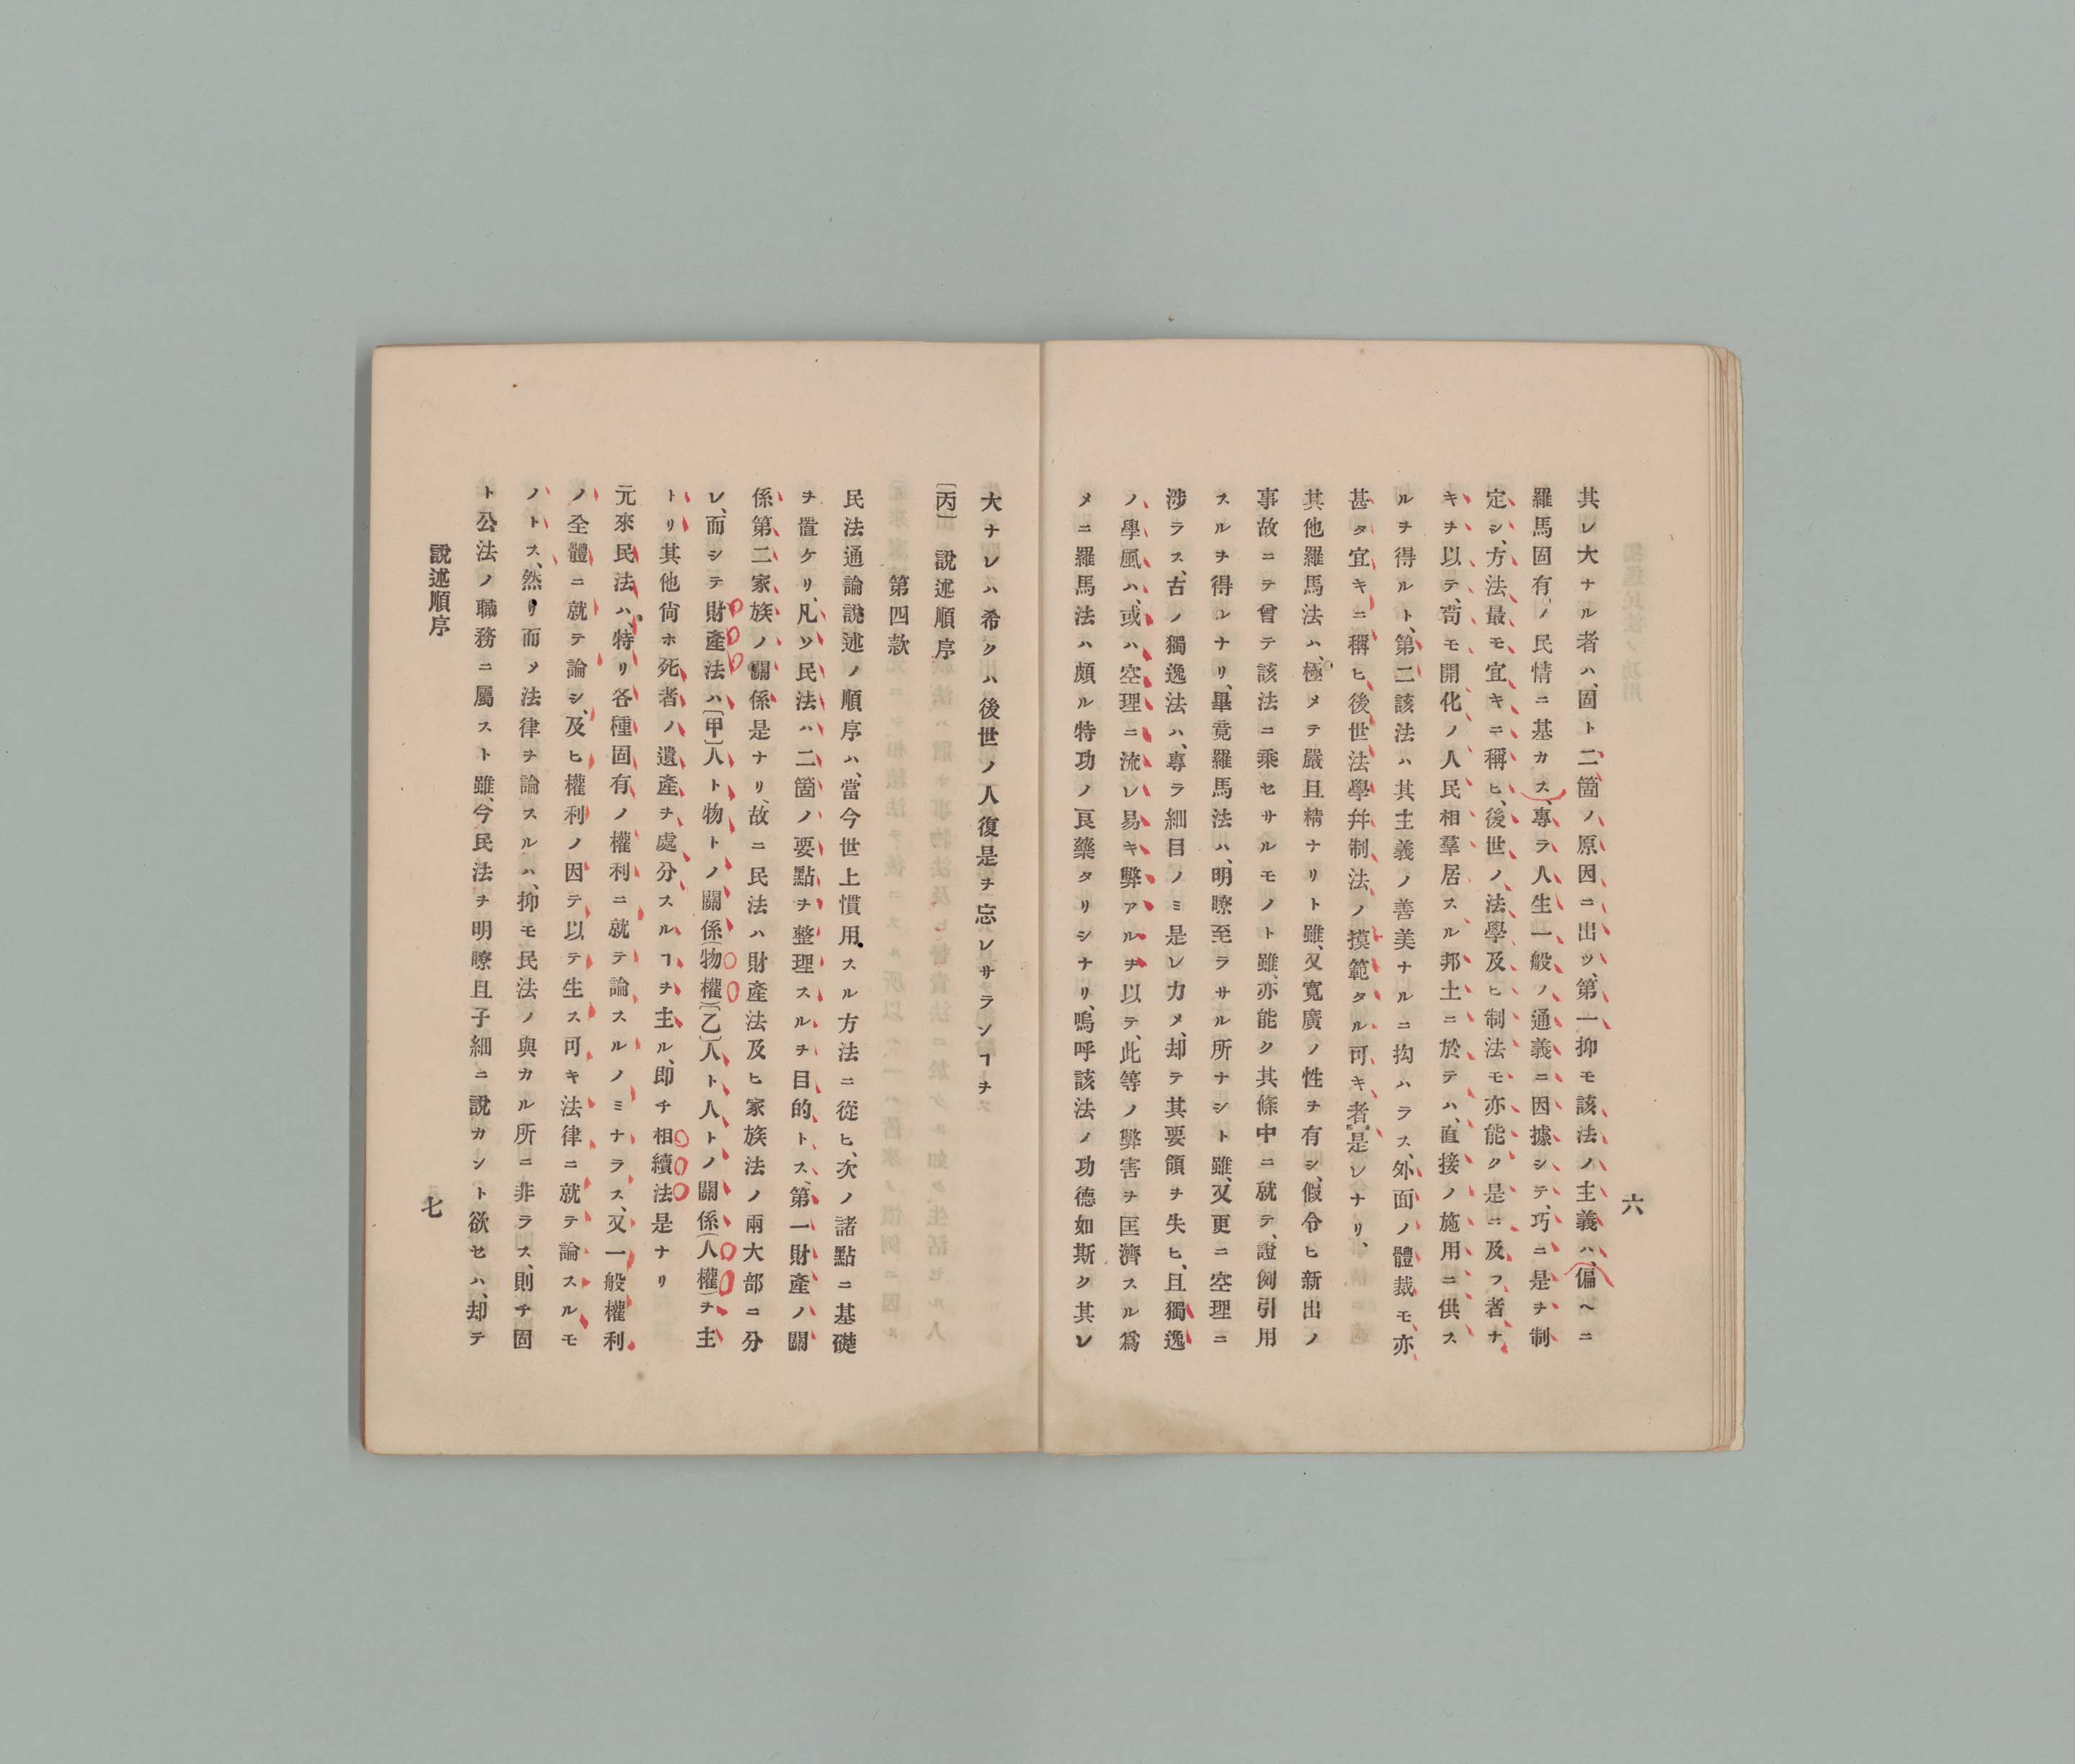 六
其レ大ナル者ハ、固ト二箇ノ原因ニ出ツ、第一抑モ該法ノ主義ハ、偏ヘニ
羅馬固有ノ民情ニ基カス、專ラ人生一般ノ通義ニ因據シテ、巧ニ是ヲ制
定シ、方法最モ宜キニ稱ヒ、後世ノ法學及ヒ制法モ亦能ク是ニ及フ者ナ
キヲ以テ、苟モ開化ノ人民相羣居スル邦土ニ於テハ、直接ノ施用ニ供ス
ルヲ得ルト、第二該法ハ其主義ノ善美ナルニ拘ハラス、外面ノ體裁モ亦
甚タ宜キニ稱ヒ、後世法學幷制法ノ摸範タル可キ者是レナリ、
其他羅馬法ハ、極メテ嚴且精ナリト雖、又寬廣ノ性ヲ有シ、假令ヒ新出ノ
事故ニテ曾テ該法ニ乘セサルモノト雖、亦能ク其條中ニ就テ、證例引用
スルヲ得レナリ、畢竟羅馬法ハ、明瞭至ラサル所ナシト雖、又更ニ空理ニ
涉ラス、古ノ獨逸法ハ、專ラ細目ノミ是レカメ、却テ其要領ヲ失ヒ、且獨逸
ノ學風ハ、或ハ空理ニ流レ易キ弊アルヲ以テ、此等ノ弊害ヲ匡濟スル爲
メニ羅馬法ハ頗ル特功ノ良藥タリシナリ、嗚呼該法ノ功德如斯ク其レ
大ナレハ希クハ後世ノ人復是ヲ忘レサランヿヲ
〔丙〕 說述順序
第四款
民法通論說述ノ順序ハ、當今世上慣用スル方法ニ從ヒ、次ノ諸點ニ基礎
ヲ置ケリ、凡ソ民法ハ二箇ノ要點ヲ整理スルヲ目的トス、第一財產ノ關
係第二家族ノ關係是ナリ、故ニ民法ハ財產法及ヒ家族法ノ兩大部ニ分
レ、而シテ財產法ハ〔甲〕人ト物トノ關係(物權)〔乙〕人ト人トノ關係(人權)ヲ主
トリ其他尙ホ死者ノ遺產ヲ處分スルヿヲ主ル、即チ相續法是ナリ
元來民法ハ、特リ各種固有ノ權利ニ就テ論スルノミナラス、又一般權利
ノ全體ニ就テ論シ、及ヒ權利ノ因テ以テ生ス可キ法律ニ就テ論スルモ
ノトス、然リ而メ法律ヲ論スルハ、抑モ民法ノ與カル所ニ非ラス、則チ固
ト公法ノ職務ニ屬スト雖、今民法ヲ明瞭且子細ニ說カント欲セハ、却テ
說述順序
七